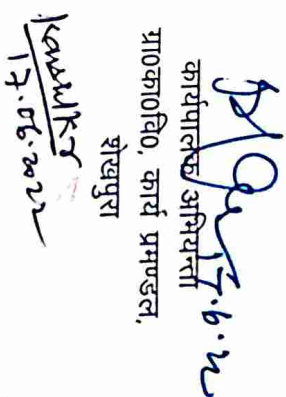 17.6.22
कार्यपालक अभियन्ता
ग्रा०का०वि०, कार्य प्रमण्डल,
शेखपुरा
17.06.2022